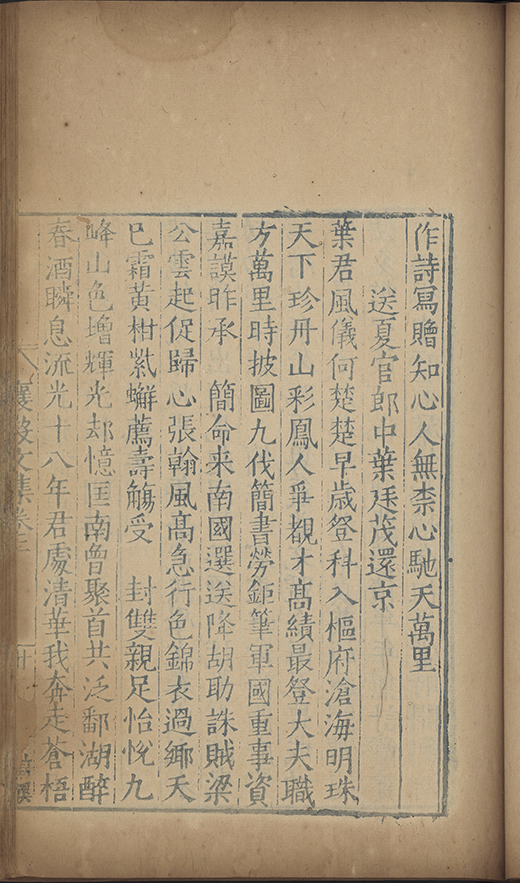 作詩寫贈知心人無柰心馳天萬里
送夏官郎中葉廷茂還京
葉君風儀何楚楚早歲登科入樞府滄海明珠
天下珍丹山彩鳳人爭覩才高績最登大夫職
方萬里時披圖九伐簡書勞鉅筆軍國重事資
嘉謨昨承 簡命来南國選送降胡助誅賊梁
公雲起促歸心張翰風高急行色錦衣過鄉天
已霜黃柑紫蠏薦壽觴受 封雙親足怡悅九
峰山色增輝光却憶匡南曾聚首共泛鄱湖醉
春酒瞬息流光十八年君處清華我奔走蒼梧
襄毅文集卷